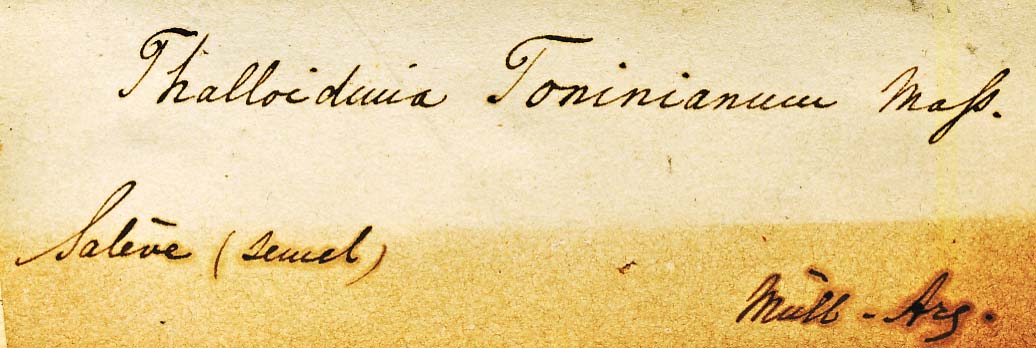 Thalloidima Toninianum Mass.
Salève (semel)
Müll-Arg.